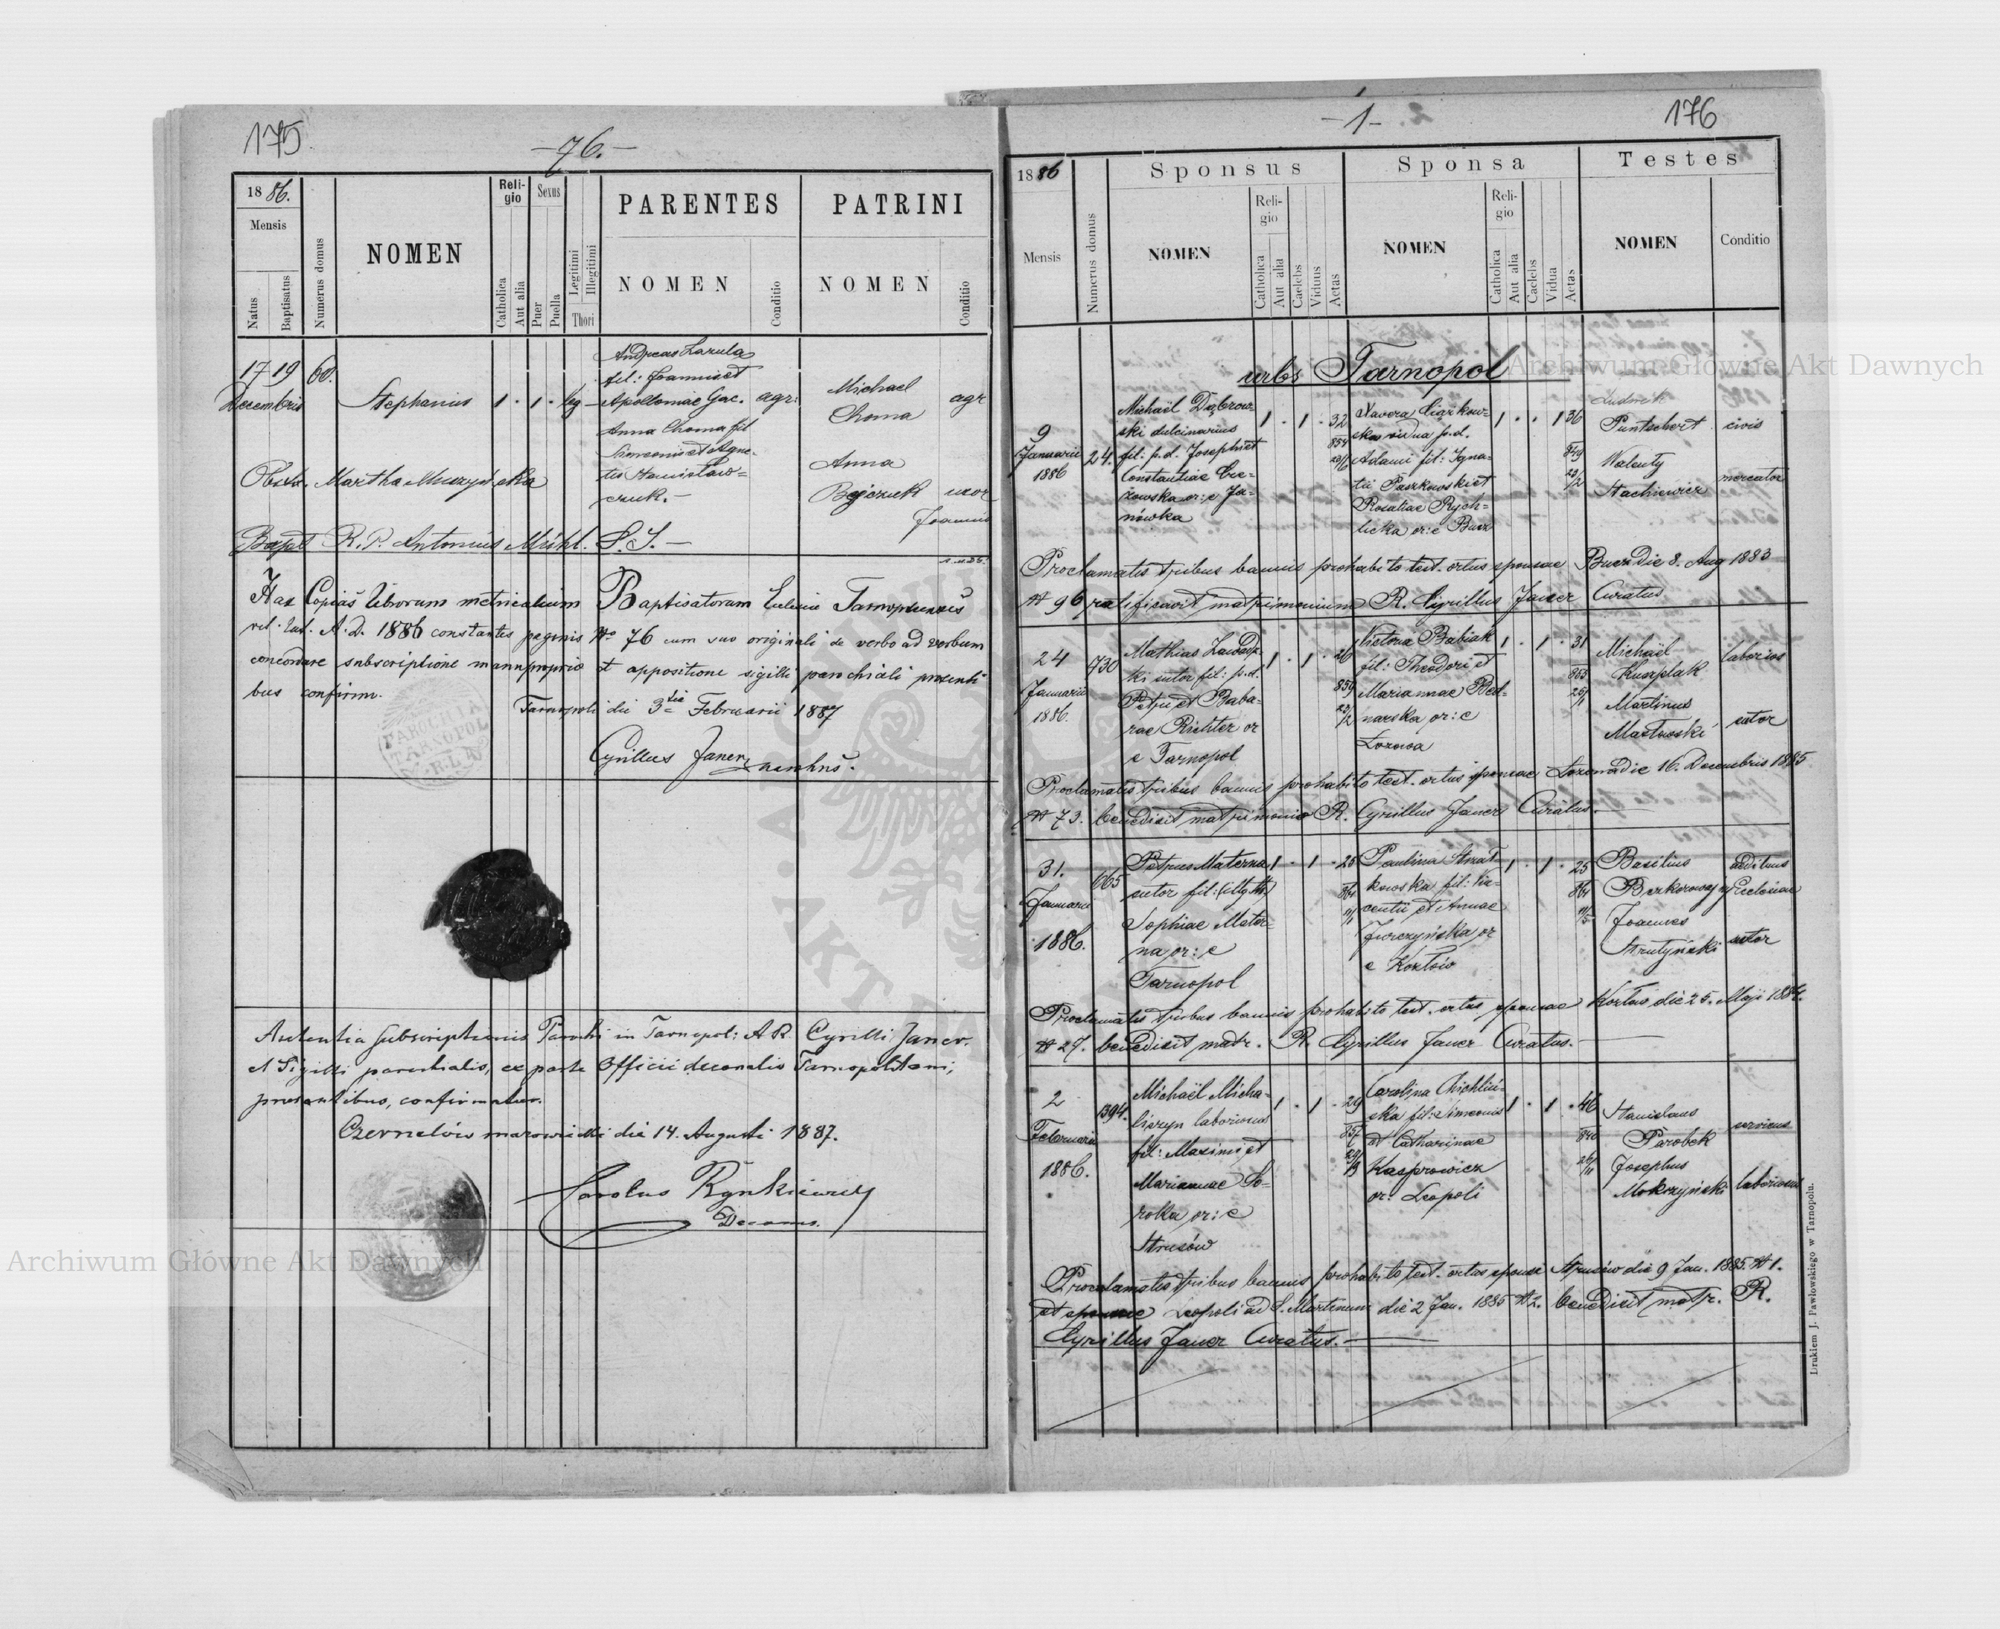 175.
- 76. -
18 86.
Mensis
Natus
Baptisatus
Numerus domus
NOMEN
Reli-
gio
Catholica
Aut alia
Sexus
Puer
Puella
Legitimi
Illegitimi
Thori
PARENTES
NOMEN
Conditio
PATRINI
NOMEN
Conditio
17 19 60.
Decembris
Stephanus 1 . 1 . leg
Andreas
fil: Joannis et
Apolloniae Gac. agr:
Anna Choma fil
Simeonis et Agne-
tis Stanisław-
czuk. -
Michael
Choma agr
Anna
uxor
Joannis
Obstr. Martha
Bapt R. P. Antonius Mühl. S. J. -
Has Copias librorum metricalium Baptisatorum Tarnopoliensis
rit. lat. A. D. 1886 constantes paginis No 76 cum suo originali de verbo ad verbum
concordare subscriptione manu propria et appositione sigilli parochiali praesenti
bus confirmo.
Tarnopoli die 3tia Februarii 1887
PAROCHIA
TARNOPOL
R. L.
Cyrillus Janer
Autentia subscriptionis Parochi in Tarnopol: A R. Cyrilli Janer.
et Sigilli parochialis, ex parte Officii decanalis Tarnopolitani,
praesentibus, confirmatur.
Czernelów mazowiecki die 14. Augusti 1887.
Carolus Rynkiewicz
Decanus.
- 1 -
176
18 86
Mensis
Numerus domus
Sponsus
NOMEN
Reli-
gio
Catholica
Aut alia
Caelebs
Viduus
Aetas
Sponsa
NOMEN
Reli-
gio
Catholica
Aut alia
Caelebs
Vidua
Aetas
Testes
NOMEN
Conditio
urbs Tarnopol
9
Januarii
1886
24.
Michaël Dąbrow-
ski dulcinarius
fil: p.d. Josephi et
Constantiae
or: e Ja-
nówka
1 . 1 . 32
Xavera
vidua p.d.
Adami fil: Igna-
tii Paszkowski et
Rosaliae Rych-
licka or: e Bucz
1 . . 1 36
Ludovik
Puntschert civis
Walenty
Stachiewicz mercator
Proclamatis tribus bannis prohabito test. ortus sponsae Bucz die 8. Aug 1883
№ 96 ratificavit matrimonium R. Cyrillus Janer Curatus
24
Januarii
1886.
730
Mathias Zawadz
ki sutor fil: p.d.
Petri et Baba-
rae Richter or
e Tarnopol
1 . 1 . 26
Victoria Babiak
fil: Theodori et
Mariannae Bed-
narska or: e
Łozowa
1 . 1 . 31
Michaël
laborios
Martinus
sutor
Proclamatis tribus bannis prohabito test. ortus sponsae Łozowa die 16. Decembris 1885
№ 73. benedixit matrimonio R. Cyrillus Janer Curatus.
31.
Januarii
1886.
665
Petrus Materna
sutor fil:
Sophiae Mater-
na or: e
Tarnopol
1 . 1 . 25
Paulina
kowska fil: Vin-
centii et Annae
Jurczyńska or
e Kozłów
1 . 1 . 25
Basilius
aedituus
Ecclesiae
Joannes
Strutyński sutor
Proclamatis tribus bannis prohabito test. ortus sponsae Kozłów die 25. Maji 1884.
№ 27. benedixit matr. R. Cyrillus Janer Curatus. -
2
Februarii
1886.
1394.
Michaël Micha-
liszyn laboriosus
fil: Maximi et
Mariannae So-
roka or: e
Strusów
1 . 1 . 29
Carolina
ska fil: Simeonis
et Catharinae
Kasprowicz
or. Leopoli
1 . 1 . 46
Stanislaus
Parobek
Josephus
Mokrzyński laboriosus
Proclamatis tribus bannis prohabito test. ortus sponsi Strusów die 9 Jan. 1885 № 1.
et sponsae Leopoli ad S. Martinum die 2 Jan. 1885 № 2. benedixit matr. R.
Cyrillus Janer Curatus. -
Drukiem J. Pawłowskiego w Tarnopolu.
Archiwum Główne Akt Dawnych
Archiwum Główne Akt Dawnych